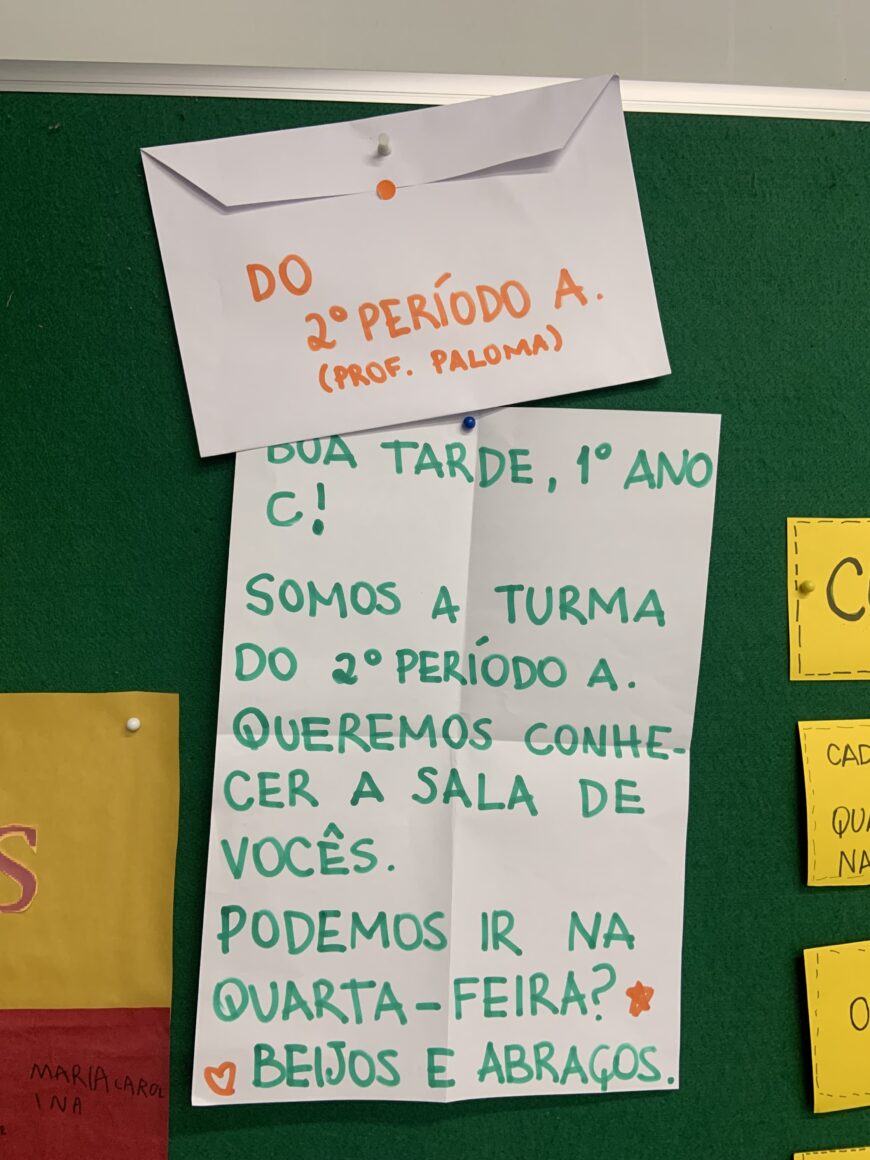 DO
2º PERÍODO A.
(PROF. PALOMA)
BOA TARDE, 1º ANO
C!
SOMOS A TURMA
DO 2º PERÍODO A.
QUEREMOS CONHE-
CER A SALA DE
VOCÊS.
PODEMOS IR NA
QUARTA-FEIRA?
BEIJOS E ABRAÇOS.
S
MARIA CAROL
INA
C
CAD
QUA
NA
O